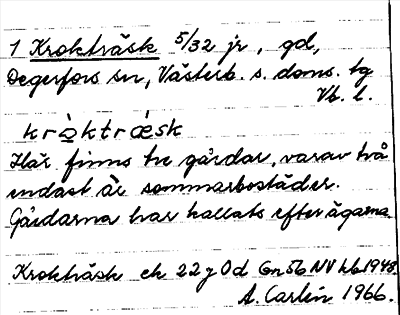 1 Krokträsk 5/32 jr, gd,
Degerfors sn, Västerb. s. doms. tg
Vb. l.
krò̲ktræsk
Här finns tre gårdar, varav två
endast är sommarbostäder.
Gårdarna har kallats efter ägarna
Krokträsk ek 22 j 0 d Gn 56 NV hb 1948.
A. Carlén 1966.